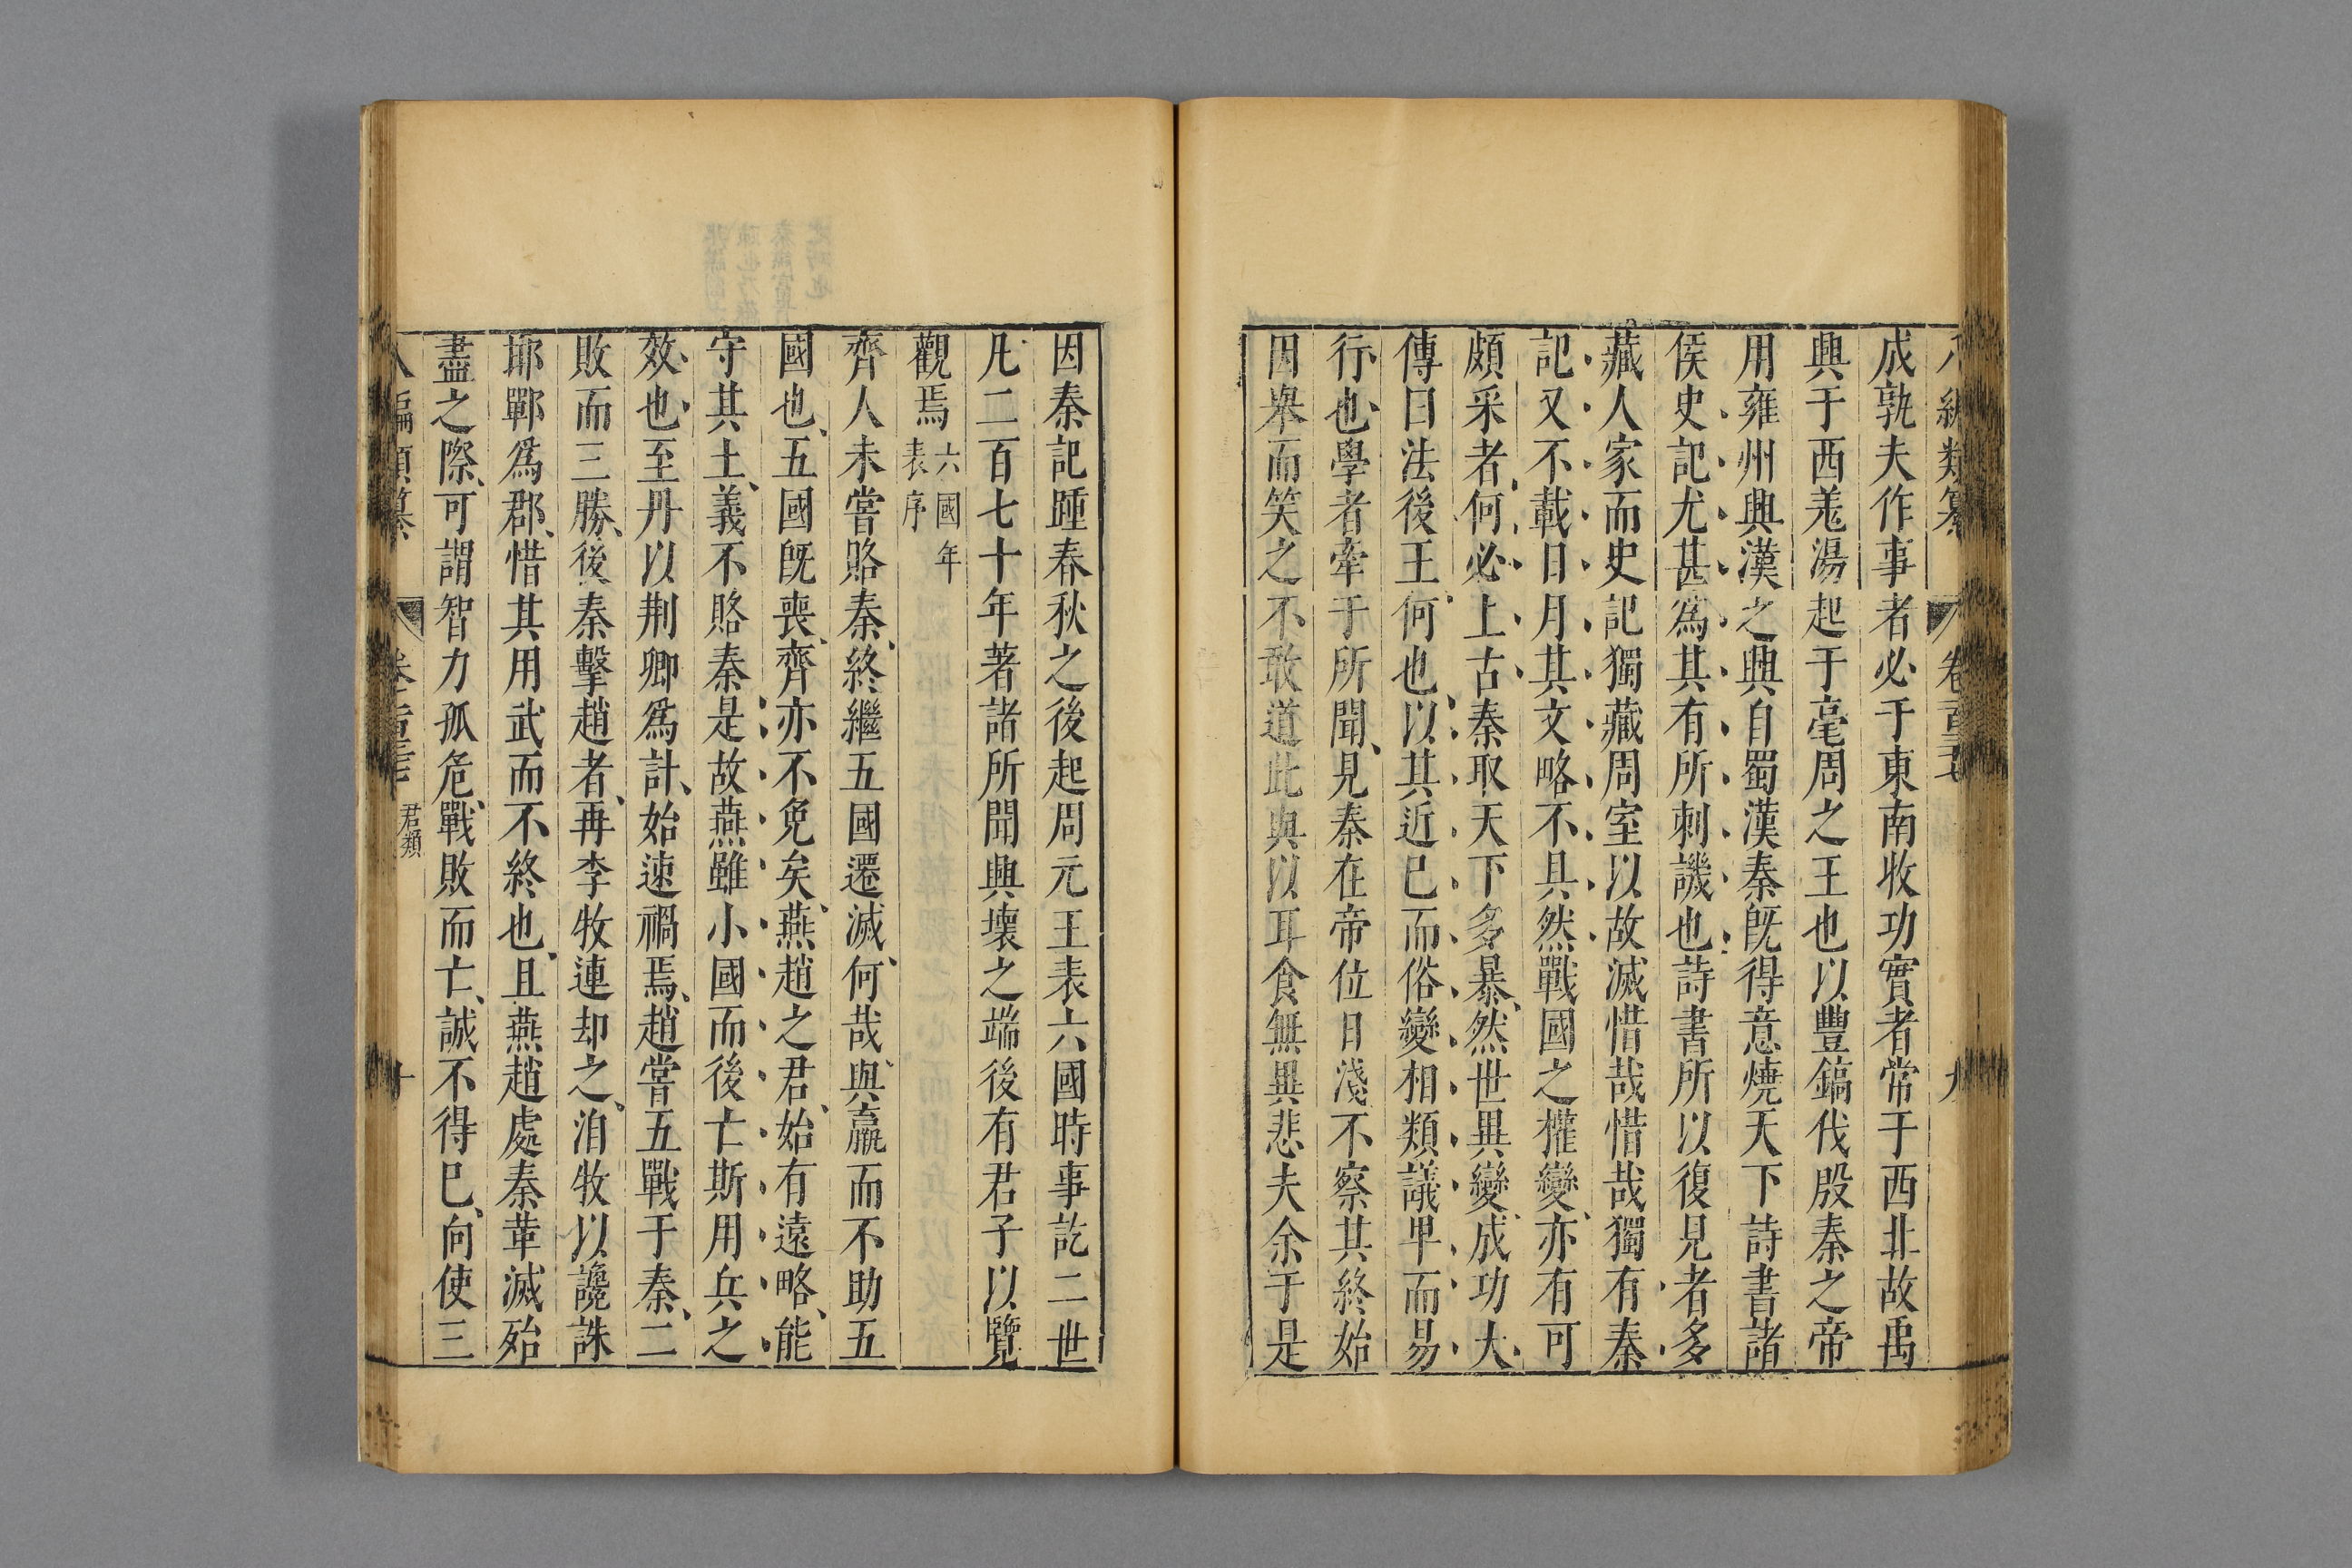 八編類纂 卷 九
成孰夫作事者必于東南收功實者常于西北故禹
興于西羌湯起于亳周之王也以豐鎬伐殷秦之帝
用雍州興漢之興自蜀漢秦旣得意燒天下詩書諸
侯史記尤甚爲其有所刺譏也詩書所以復見者多
藏人家而史記獨藏周室以故滅惜哉惜哉獨有秦
記又不載日月其文略不具然戰國之權變亦有可
頗采者何必上古秦取天下多暴然世異變成功大
傳曰法後王何也以其近已而俗變相類議卑而易
行也學者牽于所聞見秦在帝位日淺不察其終始
因舉而笑之不敢道此與以耳食無異悲夫余于是
因秦記踵春秋之後起周元王表六國時事訖二世
凡二百七十年著諸所聞興壞之端後有君子以覽
觀焉 六國年
表序
齊人未嘗賂秦終繼五國遷滅何哉與嬴而不助五
國也五國旣喪齊亦不免矣燕趙之君始有遠略能
守其土義不賂秦是故燕雖小國而後亡斯用兵之
效也至丹以荆卿爲計始速禍焉趙嘗五戰于秦二
敗而三勝後秦擊趙者再李牧連却之洎牧以讒誅
邯鄲爲郡惜其用武而不終也且燕趙處秦革滅殆
盡之際可謂智力孤危戰敗而亡誠不得已向使三
八編類纂 君類 十